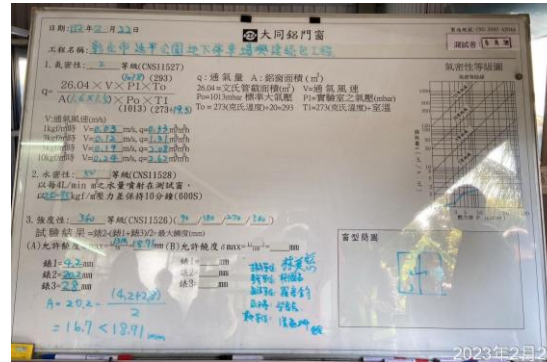 日期:112年2月22日
大同鋁門窗
工程名稱:彰化市延平公園地下停車場興建統包工程
測試者:
1. 氣密性: 2 等級(CNS11527)
氣密性等級圖
(293)
Q= 26.04×V×P1×To
A(1.6×1.5)×Po×T1
(1013) (273+19.5)
q:通氣量 A:鋁窗面積(㎡)
26.04=文氏管截面積(㎡) V=通氣風速
Po=1013mbar標準大氣壓 P1=實驗室之氣壓(mbar)
To=273(克氏溫度)+20=293 T1=273(克氏溫度)+室溫
V:通氣風速(m/s)
1kgf/㎡時 V=0.03 m/s, q=0.33㎥/h㎡
3kgf/㎡時 V=0.12 m/s, q=1.31㎥/h㎡
5kgf/㎡時 V=0.19 m/s, q=2.08㎥/h㎡
10kgf/㎡時 V=0.24 m/s, q=2.62㎥/h㎡
2. 水密性: 50 等級(CNS11528)
以每4L/min ㎡之水量噴射在測試窗,
以25~75kgf/㎡壓力差保持10分鐘(600S)
3. 強度性: 360 等級(CNS11526)(90 /180 /270 /360)
試驗結果=錶2-(錶1+錶3)/2=最大撓度(mm)
(A)允許撓度 18.91mm (B)允許撓度 δmax= mm
錶1=4.2mm
錶2=20.2mm
錶3=2.8mm
錶1= mm
錶2= mm
錶3= mm
A=20.2- (4.2+2.8)
2
=16.7<18.91mm
窗型簡圖
2023年2月2